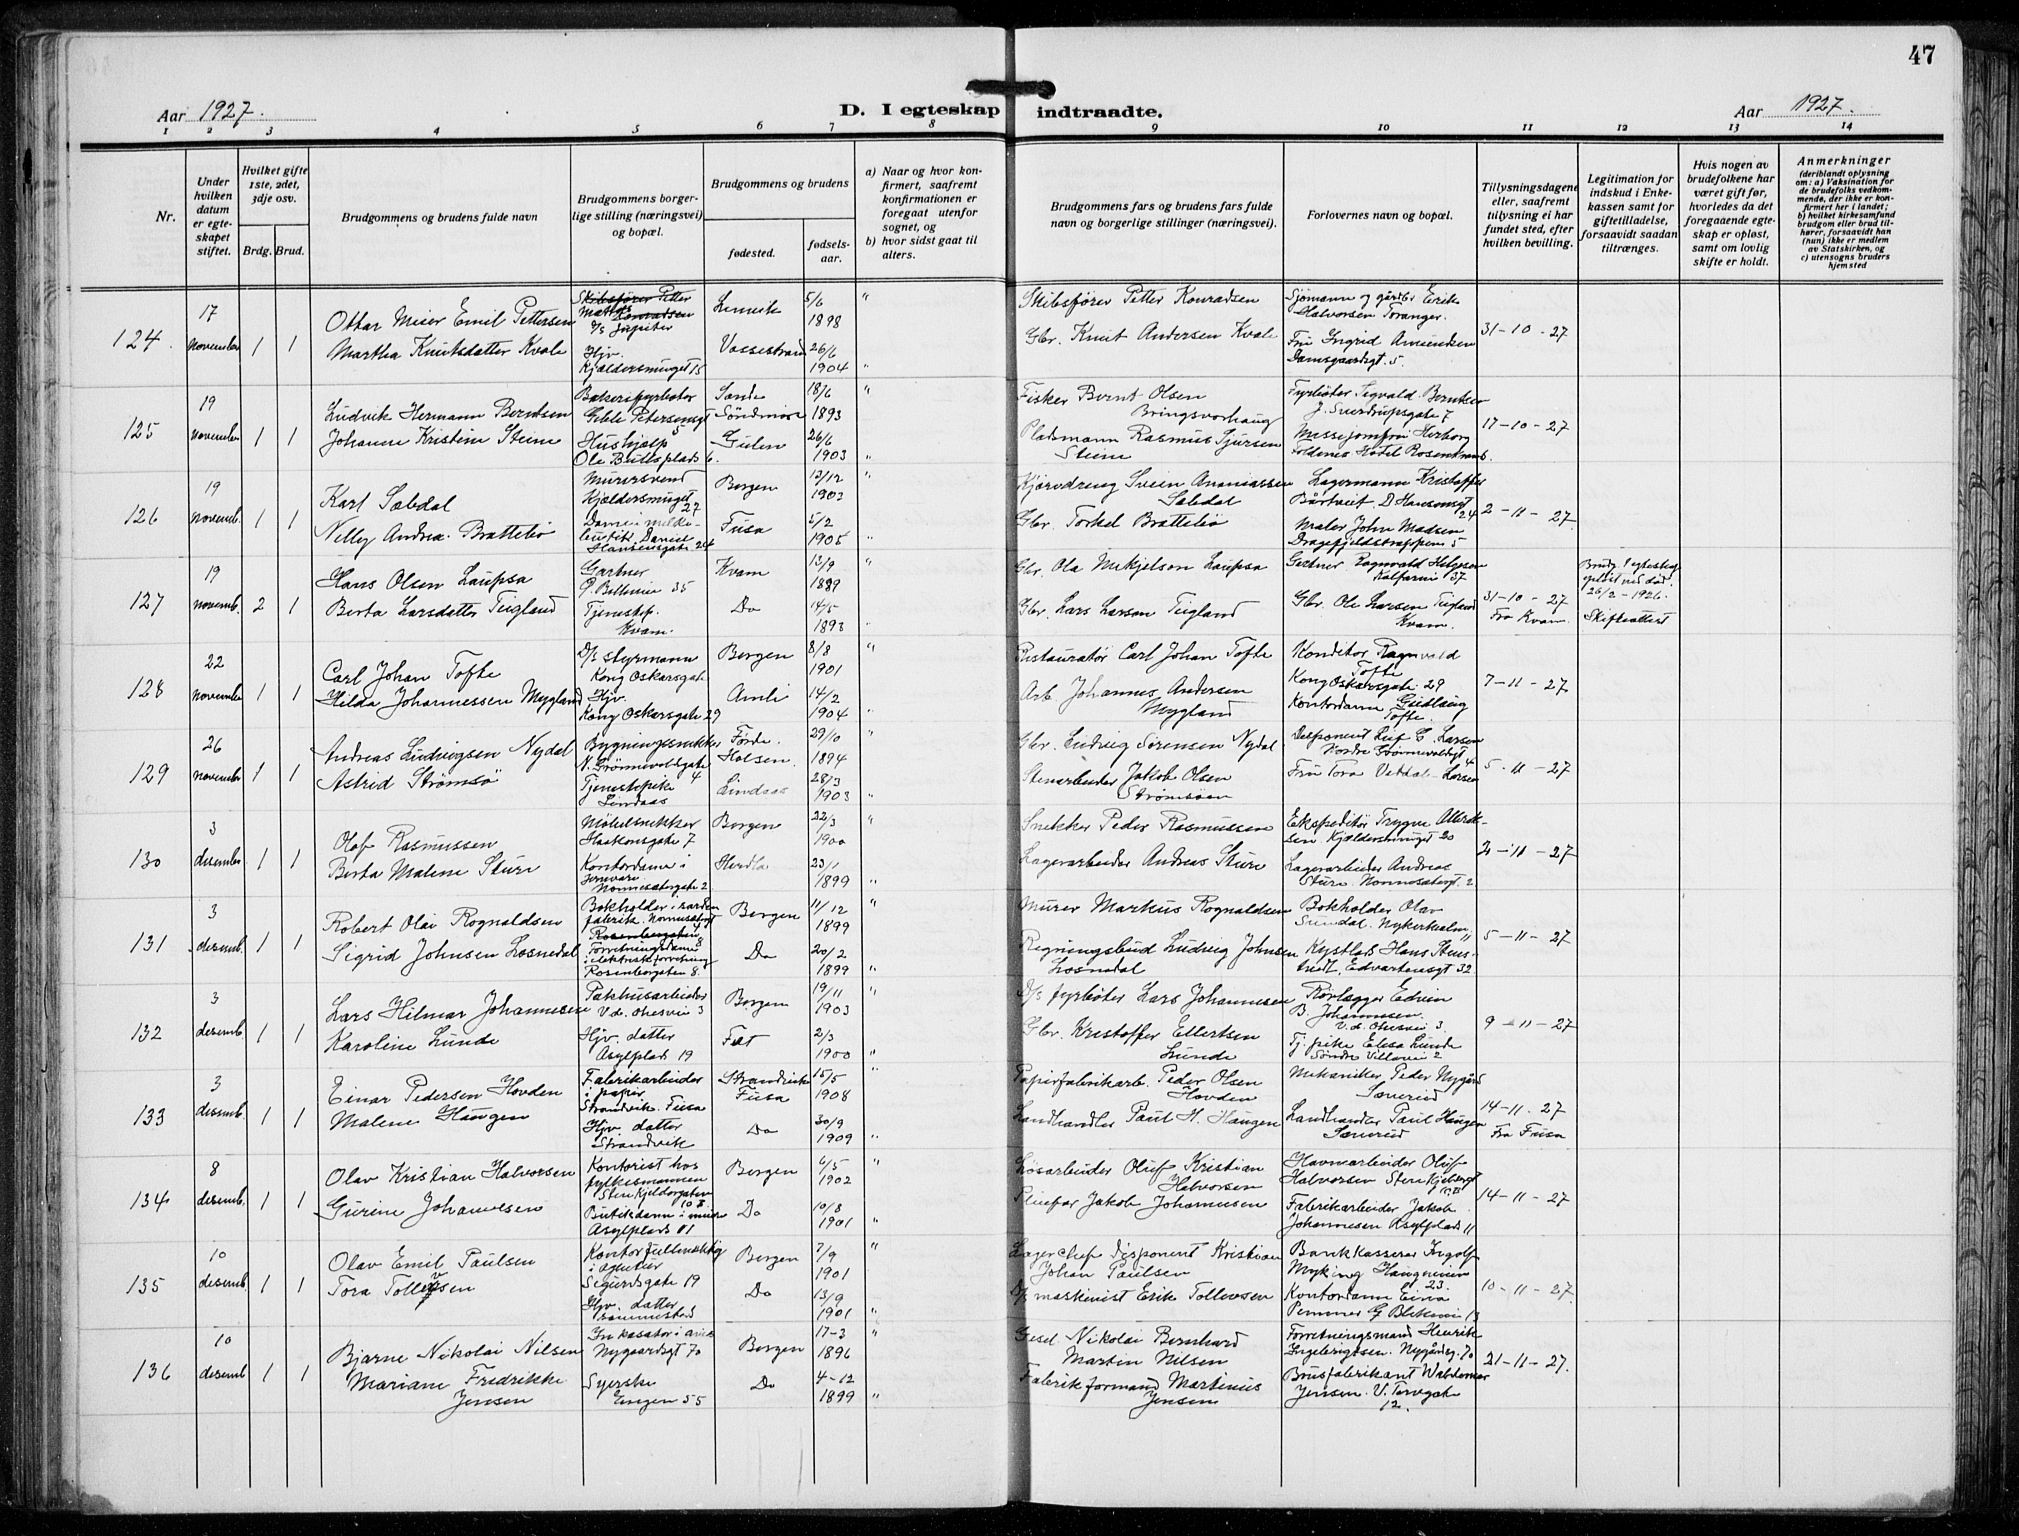 47
Aar 1927.
D. I egteskap indtraadte.
Aar 1927.
1 2 3 4 5 6 7 8 9 10 11 12 13 14
Nr.
Under hvilken datum er egteskapet stiftet.
Hvilket gifte 1ste, 2det, 3dje osv.
Brdg. Brud.
Brudgommens og brudens fulde navn
Brudgommens borgerlige stilling (næringsvei) og bopæl.
Brudgommens og brudens
fødested.
fødselsaar.
a) Naar og hvor konfirmert, saafremt konfirmationen er foregaat utenfor sognet, og
b) hvor sidst gaat til alters.
Brudgommens fars og brudens fars fulde navn og borgerlige stillinger (næringsvei).
Forlovernes navn og bopæl.
Tillysningsdagene eller, saafremt tillysning ei har fundet sted, efter hvilken bevilling.
Legitimation for indskud i Enkekassen samt for giftetilladelse, forsaavidt saadan tiltrænges.
Hvis nogen av brudefolkene har været gift før, hvorledes da det foregaaende egteskap er opløst, samt om lovlig skifte er holdt.
Anmerkninger
(deriblandt oplysning om: a) Vaksination for de brudefolks vedkommende, der ikke er konfirmert her i landet; b) hvilket kirkesamfund brudgom eller brud tilhører, forsaavidt han (hun) ikke er medlem av Statskirken, og c) utensogns bruders hjemsted
124. 17 november 1 1
Ottar Meier Emil Pettersen
Skibsfører Petter
Konradsen
D/s Jupiter
Lenvik 5/6 1898 "
Skibsfører Petter Konradsen
Sjømann og gårdbr Erik Halvorsen Toranger.
31-10-27
Martha Knutsdatter Kvale
Hjv. Kjældersmuget 15
Vossestrand 26/6 1904 "
Gbr. Knut Andersen Kvale
Fru Ingrid Amundsen Damsgaardsgt. 5
125 19 november 1 1
Ludvik Hermann Berntsen
Geble Petersensgt 5
Sande Søndmøre 18/6 1893 "
Fisker Bernt Olsen Bringsvorhaug
Fyrbøter Sigvald Berntsen J. Sverdrupsgate 7
17-10-27
Johanne Kristine Steine
Hushjelp Ole Bullsplads 6.
Gulen 26/6 1903 "
Pladsmann Rasmus Sjursen Steine
Messejomfru Herborg Foldenes Hotel Rosenkrans.
126 19 novemb. 1 1
Karl Sæbdal
Murersvend Kjældersmuget 27
Bergen 12/12 1902 "
Kjøredreng Svein Ananiassen Sæbdal
Lagermann Kristoffer Bårtveit D Hansensgt 24
2-11-27.
Nelly Andrea Brattebø
Daniel Hansensgate 24
Fusa 5/2 1905 "
Gbr. Torkel Brattebø
Maler John Madsen Dragefjeldstrappen 5
127 19 novemb. 2 1
Hans Olsen Laupsa
Gartner 35
Kvam 13/9 1889 "
Gbr. Ola Mikjelson Laupsa
Gartner Ragnvald Helgesen Kalfarvei 37
31-10-27 Fra Kvam
26/2-1926. Skifteattest
Berta Larsdatter Teigland
Tjenestep. Kvam.
Do 14/5 1893 "
Gbr. Lars Larsen Teigland
Gbr. Ole Larsen Teigland Kvam.
128 22 november 1 1
Carl Johan Tofte
D/s styrmann Kong Oskarsgate
Bergen 8/8 1901 "
Restauratør Carl Johan Tofte
Konditor Ragnvald Tofte Kong Oskarsgate 29
7-11-27
Hilda Johannessen Mygland
Hjv. Kong Oskarsgate 29
Amli 14/2 1904 "
Arb. Johannes Andersen Mygland
Kontordame Gudlaug Tofte.
129 26 november 1 1
Andreas Ludvigsen Nydal
Bygningssnekker N. Grønnevoldsgate 4
Førde. Holsen. 29/10 1894 "
Gbr. Ludvig Sørensen Nydal
Disponent Leif C. Larsen Nordre Grønnevoldsgt 4
5-11-27
Astrid Strømsø
Tjenestepike Lindaas
Lindaas 28/3 1903 "
Stenarbeider Jakob Olsen Strømsøen
Fru Tora Larsen
130 3 desember 1 1
Olaf Rasmussen
Møbelsnekker Haakonsgate 7
Bergen 22/3 1900 "
Snekker Peder Rasmussen
Ekspeditør Trygve Kjældersmuget 20
2-11-27
Berta Malene Sture
Kontordame i Nonnesætergate 2
Herdla 23/1 1899 "
Lagerarbeider Andreas Sture
Lagerarbeider Andreas Sture Nonnesætergt. 2
131 3 desemb. 1 1
Robert Olai Rognaldsen
Bokholder i fabrik.
Bergen 11/12 1899 "
Murer Markus Rognaldsen
Bokholder Olav Sundal. Nykirkealm. 11
5-11-27
Sigrid Johnsen Losnedal
Forretningsdame i elektrisk forretning Rosenborgaten 8.
Do 20/2 1899 "
Regningsbud Ludvig Johnsen Losnedal
Hans Edvardsensgt 32
132 3 desemb. 1 1
Lars Hilmar Johannesen
Pakhusarbeider 3
Bergen 19/11 1903 "
D/s fyrbøter Lars Johannesen
Rørlægger Edvin B. Johannesen. 3
9-11-27
Karoline Lunde
Hjv. datter Asylplads 19
2/3 1900 "
Gbr. Kristoffer Ellertsen Lunde
Tj. pike Elesa Lunde 2
133 3 desemb. 1 1
Einar Pedersen Hovden
Fabrikarbeider i papir Strandvik. Fusa
Strandvik Fusa 15/5 1908 "
Papirfabrikarb. Peder Olsen Hovden
Mekaniker Peder Nygård
14-11-27 Fra Fusa
Malene Haugen
Hjv. datter Strandvik
Do 30/9 1909 "
Landhandler Paul H. Haugen
Landhandler Paul Haugen
134 8 desemb. 1 1
Olav Kristian Halvorsen
Kontorist hos fylkesmannen
Bergen 6/5 1902 "
Løsarbeider Oluf Kristian Halvorsen
Havnarbeider Oluf Halvorsen
14-11-27
Gurine Johannesen
Butikdame i Asylplads 11
Do 10/8 1901 "
Jakob Johannesen
Fabrikarbeider Jakob Johannesen Asylplads 11
135 10 desemb. 1 1
Olav Emil Paulsen
Kontorfuldmektig i agentur Sigurdsgate 19
Bergen 7/9 1901 "
Lagerchef Disponent Kristian Johan Paulsen
Bankkasserer Ingolf Myking Haugeveien 23
10-11-27.
Tora Tollevsen
Hjv. datter
Do 13/9 1901 "
D/s maskinist Erik Tollevsen
Kontordame 13
136 10 desemb 1 1
Bjarne Nikolai Nilsen
Inkasator i Nygaardsgt 70
Bergen 17-3 1896 "
Nikolai Bernhard Martin Nilsen
Forretningsmand Henrik Ingebrigtsen. Nygårdsg. 70
21-11-27.
Mariane Fredrikke Jensen
Syerske Engen 55
Do 4-12 1899 "
Fabrik formand Martinus Jensen
Brusfabrikant Waldemar Jensen. V. Torvgate 12.